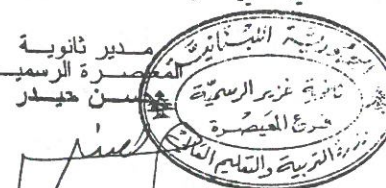 مدير ثانوية
المعيصرة الرسمية
حسن حيدر
الجمهورية اللبنانية
ثانوية غزير الرسمية
فرع المعيصرة
وزارة التربية والتعليم العالي